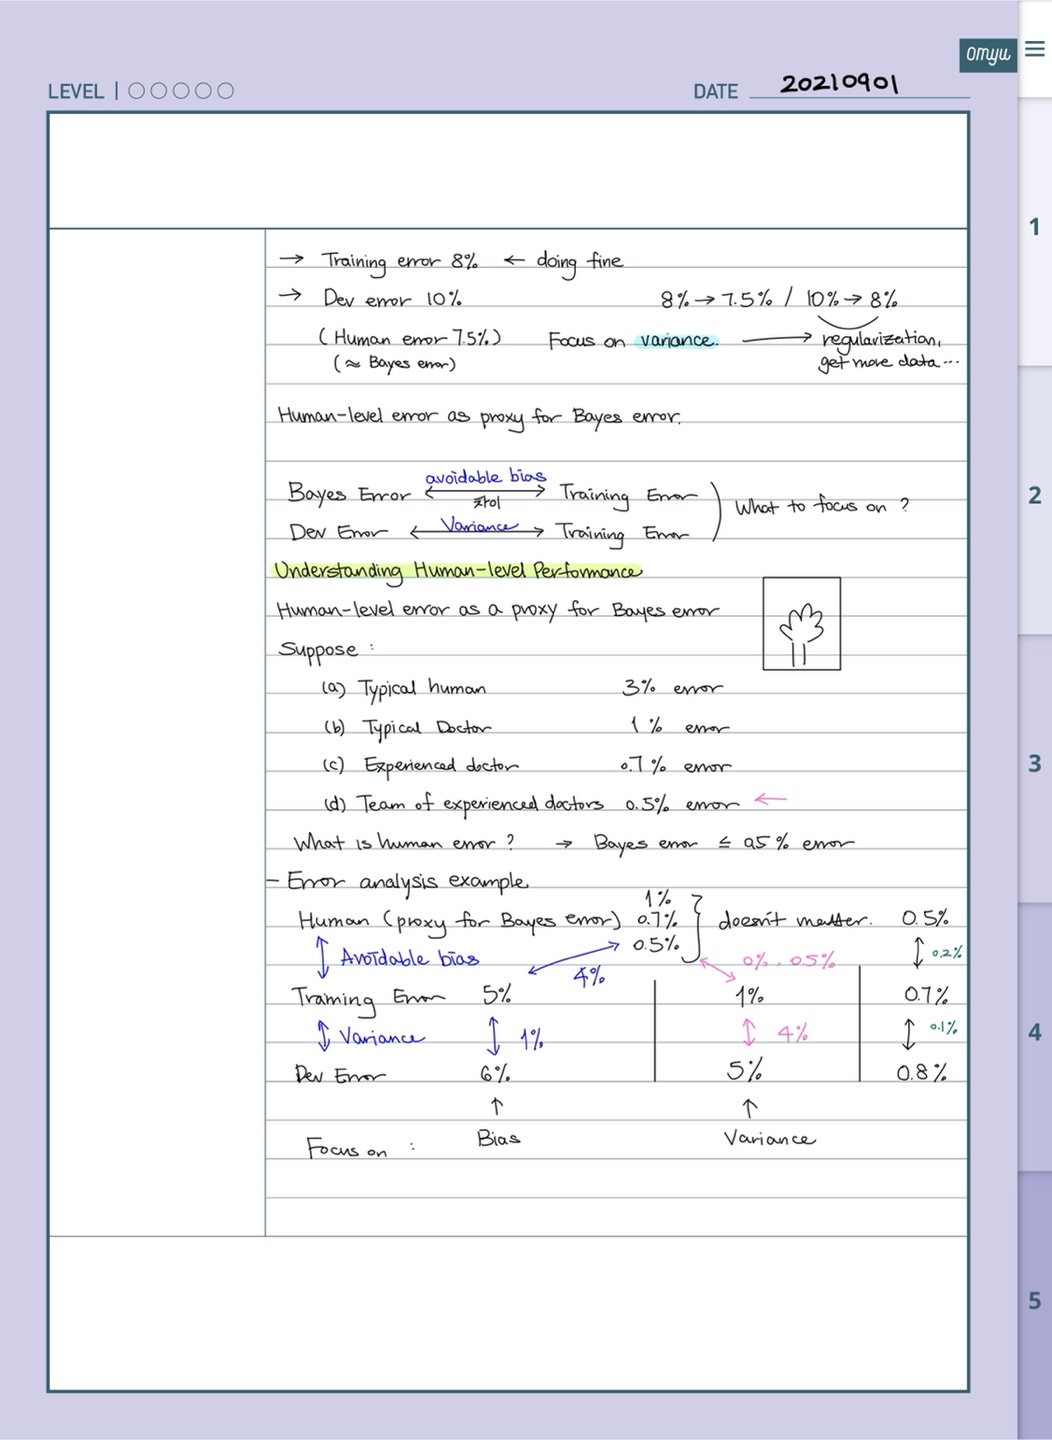 omyu
LEVEL | ○○○○○
DATE 20210901
→ Training error 8% ← doing fine
→ Dev error 10% 8% → 7.5% / 10% → 8%
(Human error 7.5%) Focus on variance. → regularization,
(≈ Bayes error) get more data...
Human-level error as proxy for Bayes error.
avoidable bias
Bayes Error ↔ Training Error
차이
What to focus on ?
Dev Error ↔ Training Error
Variance
Understanding Human-level Performance
Human-level error as a proxy for Bayes error
Suppose :
(a) Typical human 3% error
(b) Typical Doctor 1% error
(c) Experienced doctor 0.7% error
(d) Team of experienced doctors 0.5% error ←
What is human error ? → Bayes error ≤ 0.5% error
- Error analysis example
1%
Human (proxy for Bayes error) 0.7% doesn't matter. 0.5%
0.5%
↕ Avoidable bias 4% 0%, 0.5% ↕ 0.2%
Training Error 5% 1% 0.7%
↕ Variance ↕ 1% ↕ 4% ↕ 0.1%
Dev Error 6% 5% 0.8%
↑ ↑
Focus on : Bias Variance
1
2
3
4
5